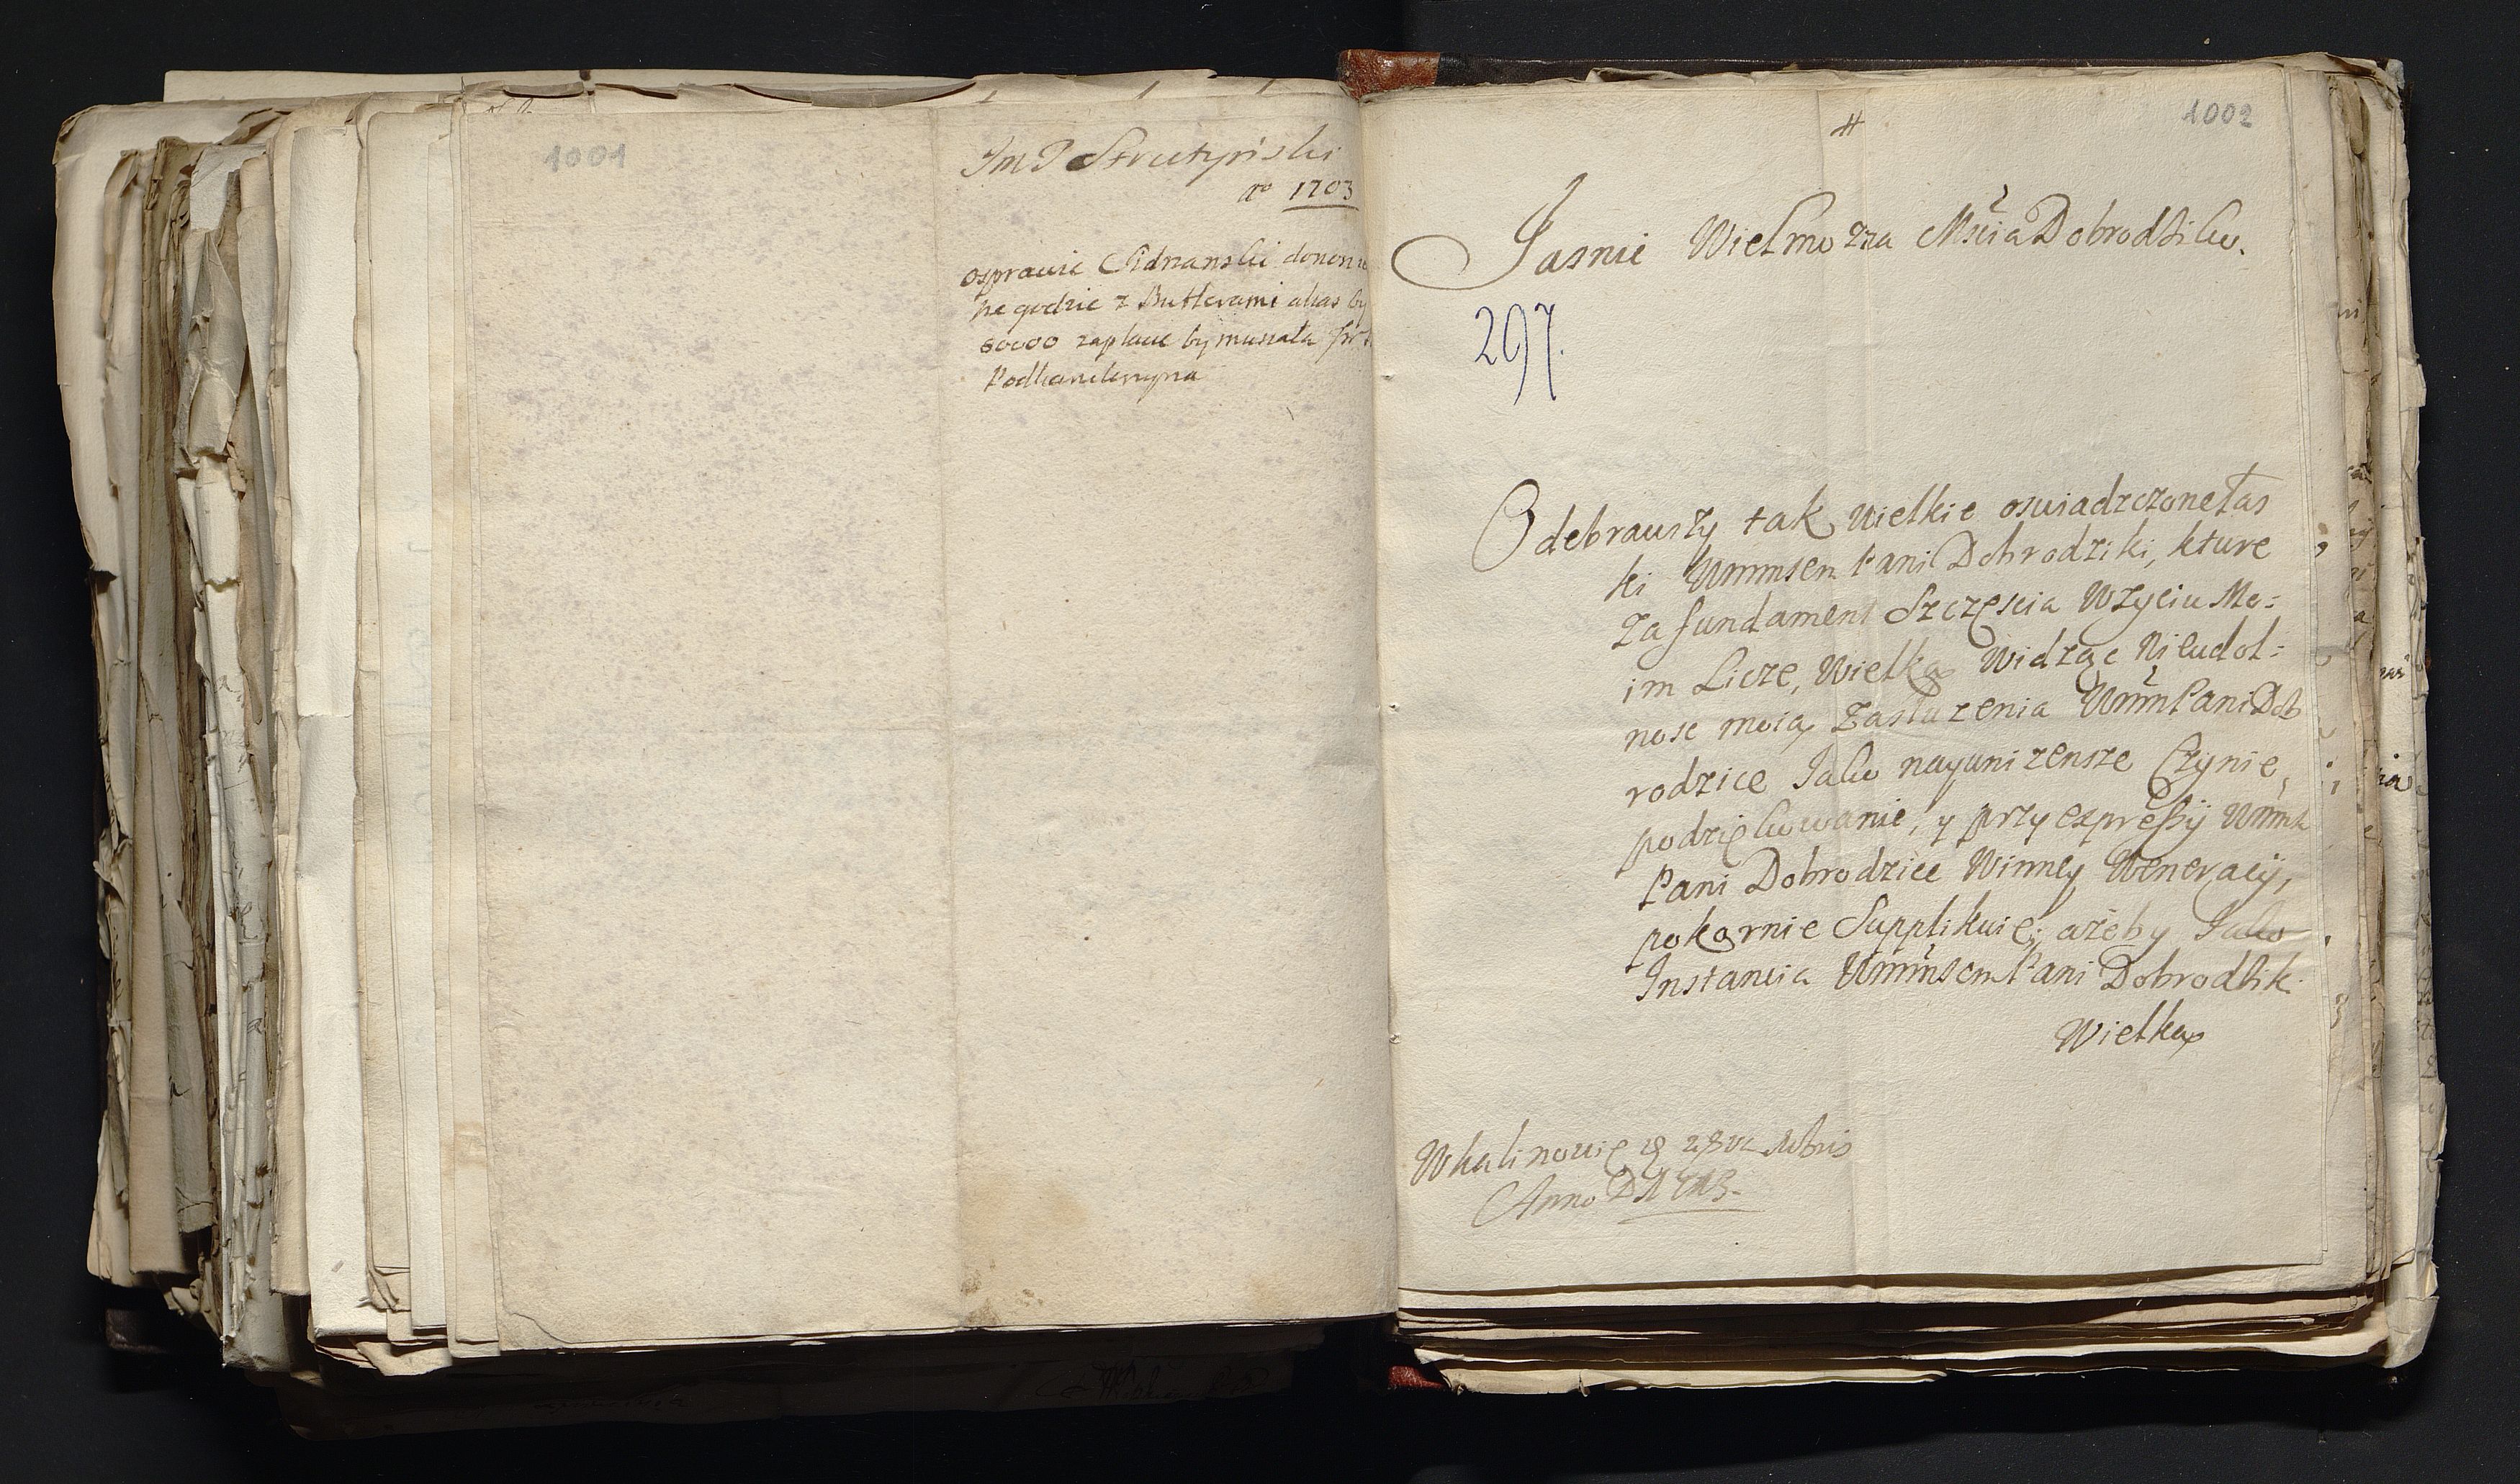 1001
Im P Strutyński
Ao 1703
osprawie Sidzanski donosi
ze godzic z Butlerami alias by
60000 zaplacic by musiała
Podkanclerzyna
1002
#
Jasnie Wielmozna Mścia Dobrodziko.
297.
Odebrawszy tak wielkie oswiadzczone łas
ki Wmmsem Pani Dobrodziki, kture
za fundament Szczęscia Wzyciu Mo:
im Licze, Wielką Widząc Nieudol:
nosc moią Zasłuzenia WmmPani Dob
rodzice Jako nayunizensze Czynie,
podziękowanie, y przy expressij Wmm
Pani Dobrodzice Winney Weneracij,
pokornie Supplikuię; azeby Jako
Instancia WmmsemPani Dobrodzik.
Wielką
Wkalinowie
Anno D